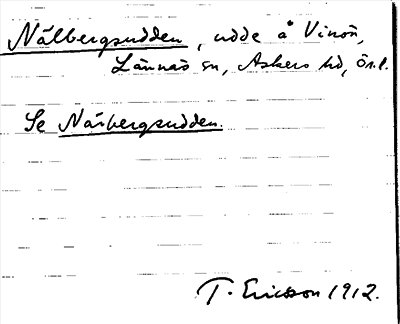 Nålbergsudden, udde å Vinön,
Lännäs sn, Askers hd, Ör.l.
Se Narbergsudden.
T. Ericsson 1912.